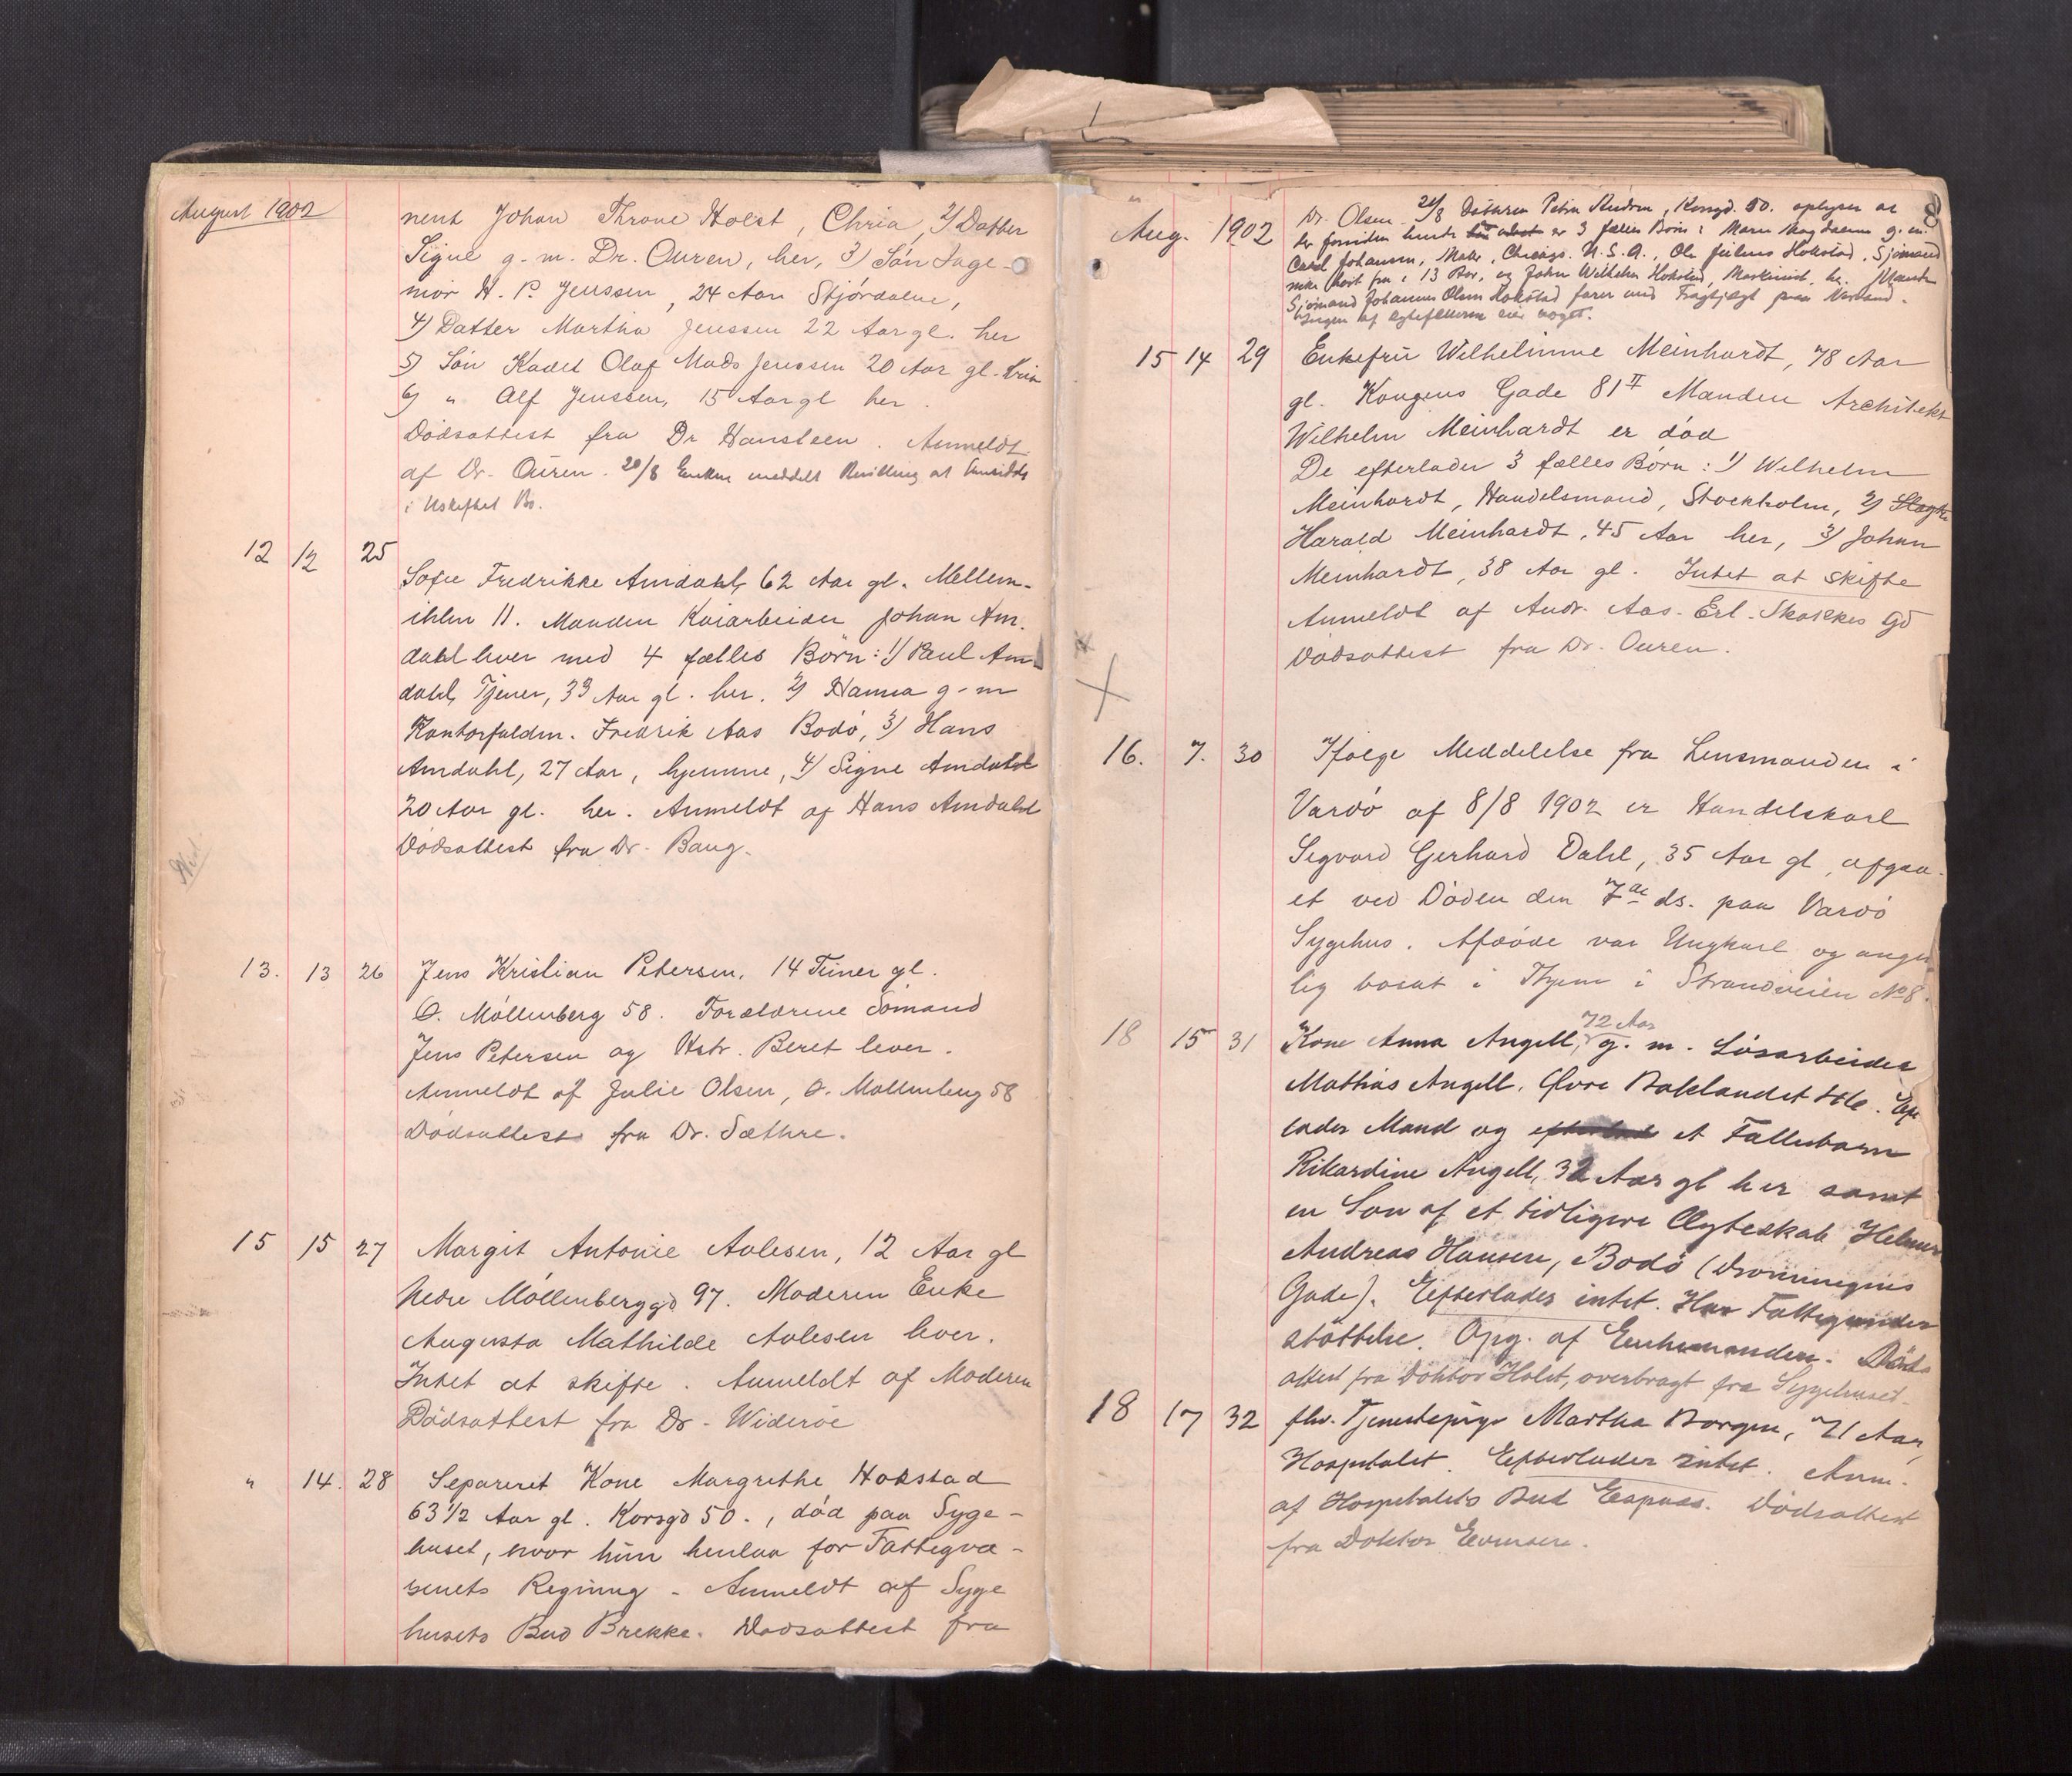 August 1902
nent Johan Throne Holst, Chria, 2) Datter
Signe g. m. Dr. Ouren, her, 3) Søn Inge-
niør H. P. Jenssen, 24 Aar Stjørdalen,
4) Datter Martha Jenssen 22 Aar gl. her
5) Søn Kadet Oluf Mads Jenssen 20 Aar gl. Kria
6) " Alf Jenssen, 15 Aar gl her.
Dødsattest fra Dr Hansteen. Anmeldt
af Dr. Ouren. 20/8 Enken meddelt Bevilling at hensidde
i Uskiftet Bo.
12 12 25
Sofie Fredrikke Amdahl, 62 Aar gl. Mellem-
ihlen 11. Manden Kaiarbeider Johan Am-
dahl lever med 4 fælles Børn: 1) Paul Am-
dahl, Tjener, 33 Aar gl. her. 2) Hanna g. m
Kontorfuldm. Fredrik Aas Bodø, 3) Hans
Amdahl, 27 Aar, hjemme, 4) Signe Amdahl
20 Aar gl. her. Anmeldt af Hans Amdahl
Dødsattest fra Dr. Bang.
13. 13 26 Jens Kristian Petersen, 14 Timer gl.
Ø. Møllenberg 58. Forældrene Sømand
Jens Petersen og Hstr. Beret lever.
Anmeldt af Julie Olsen, Ø. Møllenberg 58
Dødsattest fra Dr. Sæthre.
15 15 27 Margit Antonie Aalesen, 12 Aar gl
Nedre Møllenberggd 97. Moderen Enke
Augusta Mathilde Aalesen lever.
Intet at skifte. Anmeldt af Moderen
Dødsattest fra Dr. Widerøe
" 14. 28 Separeret Kone Margrethe Hokstad
63 1/2 Aar gl. Korsgd 50., død paa Syge-
huset, hvor hun henlaa for Fattigvæ-
senets Regning - Anmeldt af Syge
husets Bud Brekke. Dødsattest fra
Aug. 1902 Dr. Olsen. 20/8 Datteren Petra, Korsgd. 50. oplyser at
der foruden hende er 3 fælles Børn: Maren Magdalena g. m.
Carl Johansen, Maler, Chicago. U.S.A., Ole Julius Hokstad, Sjømand
bort fra i 13 Aar, og John Wilhelm Hokstad, Maskinist, her. Manden
Sjømand Johannes Olsen Hokstad farer med Fragtjægt paa Nordland.
Ingen af Ægtefællerne eier noget.
15 14 29 Enkefru Wilhelmine Meinhardt, 78 Aar
gl. Kongens Gade 81 II Manden Architekt
Wilhelm Meinhardt er død
De efterlader 3 fælles Børn: 1) Wilhelm
Meinhardt, Handelsmand, Stockholm, 2)
Harald Meinhardt, 45 Aar her, 3) Johan
Meinhardt, 38 Aar gl. Intet at skifte
Anmeldt af Andr. Aas. Erl. Skakkes Gd
Dødsattest fra Dr. Ouren.
16. 7. 30 Ifølge Meddelelse fra Lensmanden i
Vardø af 8/8 1902 er Handelskarl
Sigvard Gerhard Dahl, 35 Aar gl, afgaa-
et ved Døden den 7de ds. paa Vardø
Sygehus. Afdøde var Ungkarl og angiv
lig bosat i Thjem i Strandveien No 8.
72 Aar
18 15 31 Kone Anna Angell, g. m. Løsarbeider
Mathias Angell, Øvre Baklandet 44c. Efter
lader Mand og efterlad et Fællesbarn
Rikardine Angell, 32 Aar gl her samt
en Søn af et tidligere Ægteskab Helmer
Andreas Hansen, Bodø (Dronningens
Gade). Efterlader intet. Har Fattigunder
støttelse. Opg. af Enkemanden. Døds
attest fra Doktor Holst, overbragt fra Sygehuset.
18 17 32 fhv. Tjenestepige Martha Borgen, 71 Aar
Hospitalet. Efterlader intet. Anm.
af Hospitalets Bud Espaas. Dødsattest
fra Doktor Evensen.